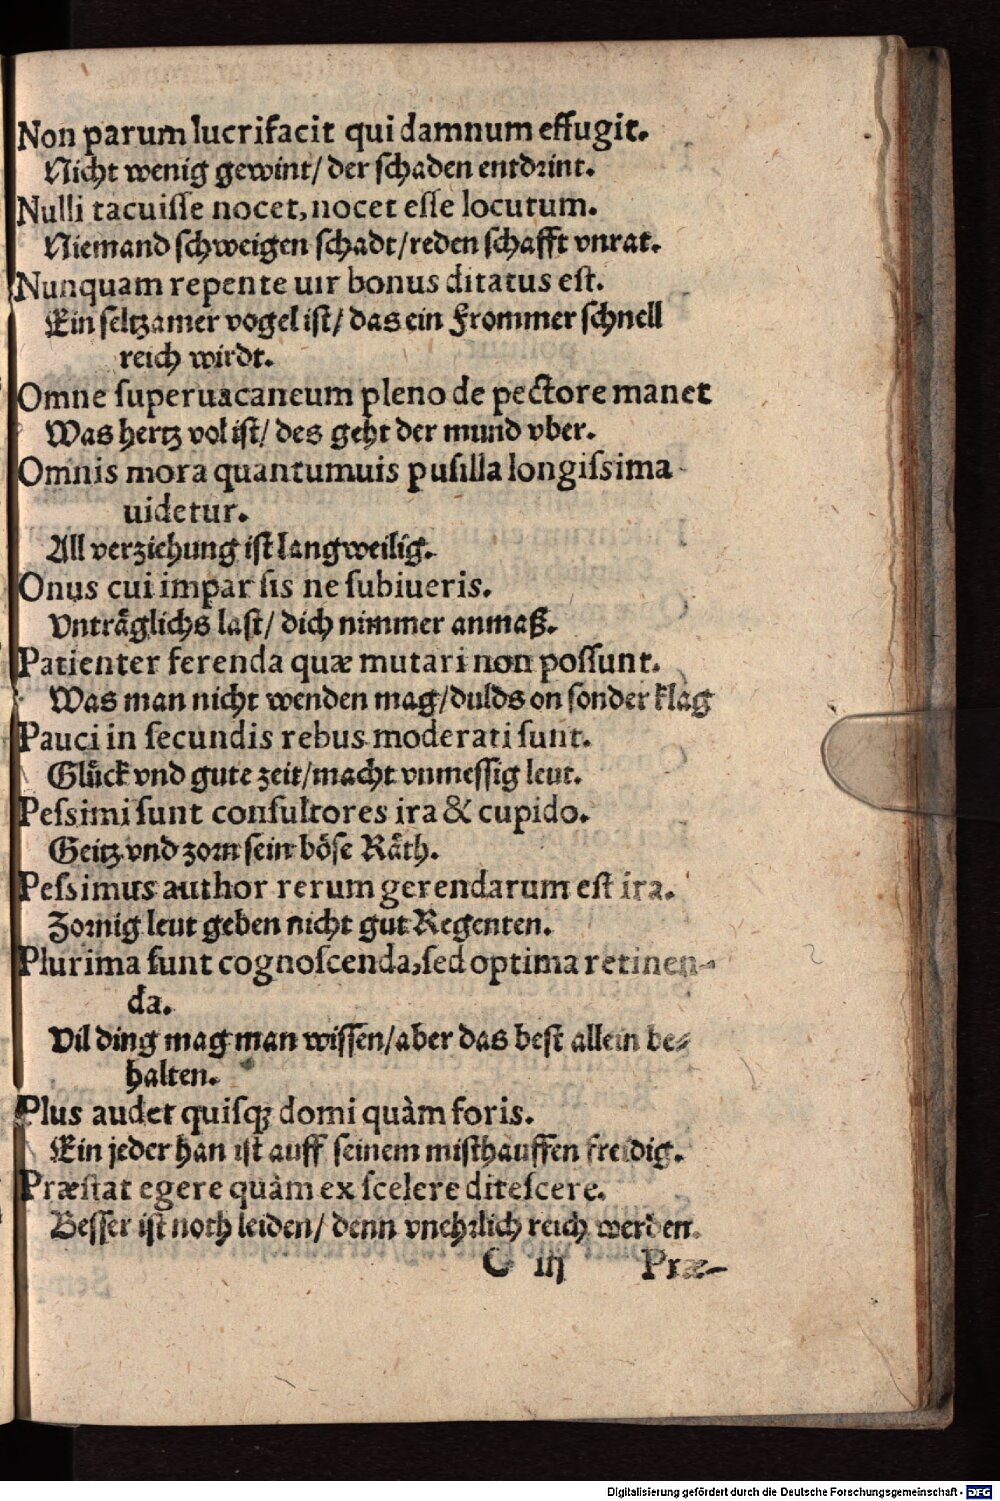 Non parum lucrifacit qui damnum effugit.
Nicht wenig gewint/ der schaden entdrint.
Nulli tacuiſſe nocet, nocet eſſe locutum.
Niemand ſchweigen ſchadt/reden ſchafft vnrat.
Nunquam repente uir bonus ditatus eſt.
Ein ſeltzamer vogel iſt/ das ein Frommer ſchnell
reich wirdt.
Omne ſuperuacaneum pleno de pectore manet
Was hertz vol iſt/ des geht der mund vber.
Omnis mora quantumuis puſilla longiſsima
uidetur.
All verziehung iſt langweilig.
Onus cui impar ſis ne ſubiueris.
Vnträglichs laſt/ dich nimmer anmaß.
Patienter ferenda quæ mutari non poſſunt.
Was man nicht wenden mag/dulds on ſonder klag
Pauci in ſecundis rebus moderati ſunt.
Glück vnd gute zeit/macht vnmeſſig leut.
Peſsimi ſunt conſultores ira & cupido.
Geitz vnd zorn ſein böſe Räth.
Peſsimus author rerum gerendarum eſt ira.
Zornig leut geben nicht gut Regenten.
Plurima ſunt cognoſcenda, ſed optima retinen-
da.
Vil ding mag man wiſſen/aber das beſt allein be-
halten.
Plus audet quiſqꝫ domi quàm foris.
Ein jeder han iſt auff ſeinem miſthauffen freidig.
Præſtat egere quàm ex ſcelere diteſcere.
Beſſer iſt noth leiden/ denn vnehrlich reich werden.
C iij Præ-
Digitalisierung gefördert durch die Deutsche Forschungsgemeinschaft - DFG